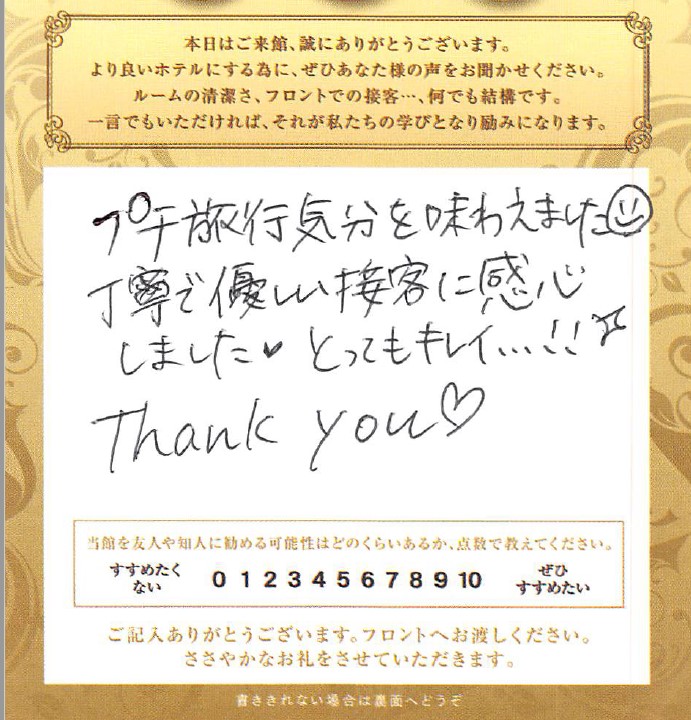 本日はご来館、誠にありがとうございます。
より良いホテルにする為に、ぜひあなた様の声をお聞かせください。
ルームの清潔さ、フロントでの接客…、何でも結構です。
一言でもいただければ、それが私たちの学びとなり励みになります。
プチ旅行気分を味わえました
丁寧で優しい接客に感心
しました♥ とってもキレイ…!!
Thank you♡
当館を友人や知人に勧める可能性はどのくらいあるか、点数で教えてください。
すすめたく
ない
0 1 2 3 4 5 6 7 8 9 10
ぜひ
すすめたい
ご記入ありがとうございます。フロントへお渡しください。
ささやかなお礼をさせていただきます。
書ききれない場合は裏面へどうぞ